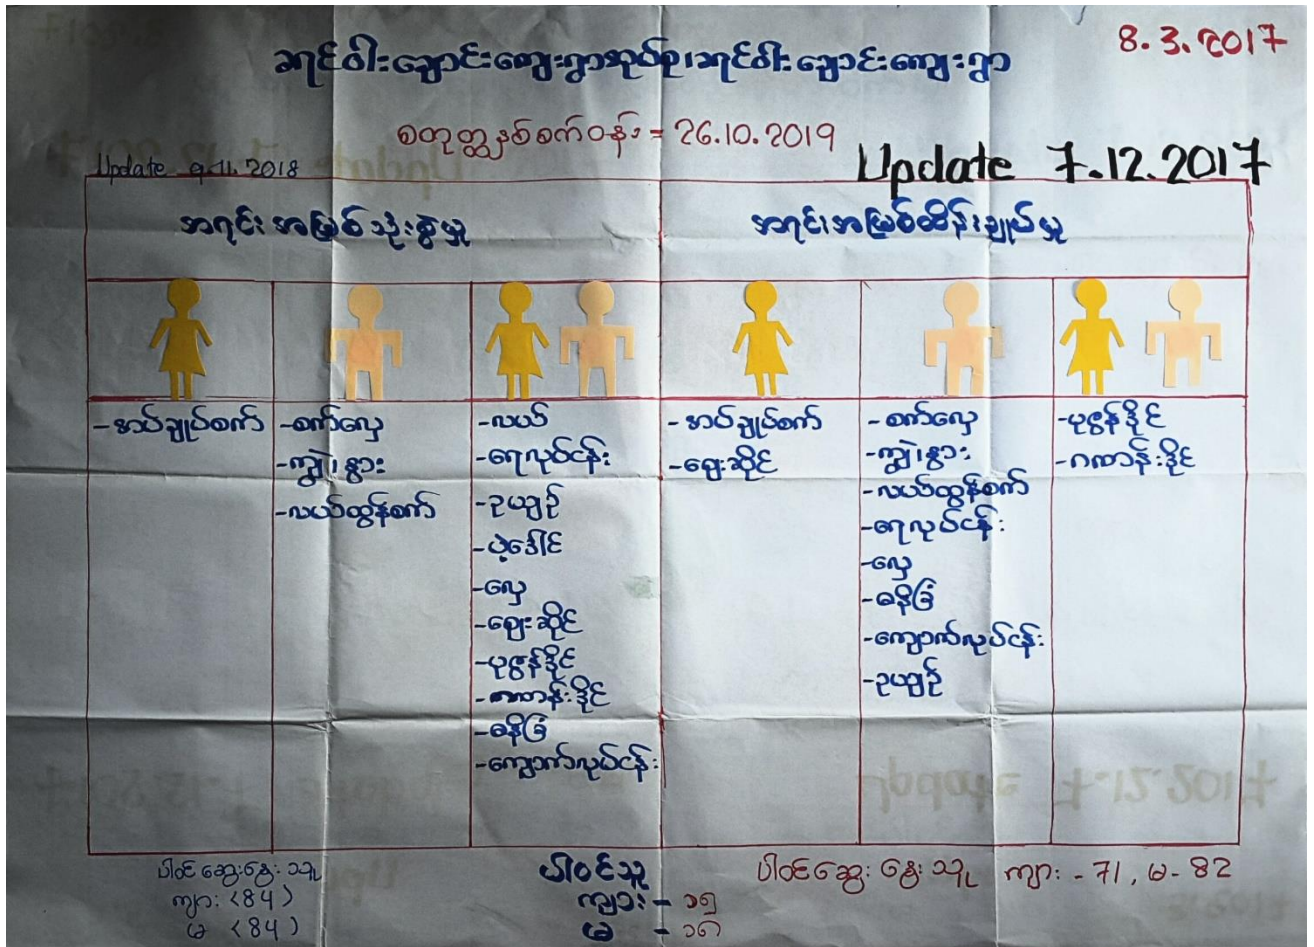 8.3.2017
ဆင်ဝါးချောင်းကျေးရွာအုပ်စု၊ဆင်ဝါးချောင်းကျေးရွာ
စတုတ္ထနှစ်စက်ဝန်း = 26.10.2019
Update 9.11.2018
Update 7.12.2017
အရင်းအမြစ်သုံးစွဲမှု
အရင်းအမြစ်ထိန်းချုပ်မှု
-အပ်ချုပ်စက်
-စက်လှေ
-ကျွဲ၊နွား
-လယ်ထွန်စက်
-လယ်
-ရေလုပ်ငန်း
-ဥယျာဉ်
-ပဲ့ဒေါင်
-လှေ
-ဈေးဆိုင်
-ပုဇွန်ဒိုင်
-ဂဏန်းဒိုင်
-ဓနိခြံ
-ကျောက်လုပ်ငန်း
-အပ်ချုပ်စက်
-ဈေးဆိုင်
-စက်လှေ
-ကျွဲ၊နွား
-လယ်ထွန်စက်
-ရေလုပ်ငန်း
-လှေ
-ဓနိခြံ
-ကျောက်လုပ်ငန်း
-ဥယျာဉ်
-ပုဇွန်ဒိုင်
-ဂဏာန်းဒိုင်
ပါဝင်ဆွေးနွေးသူ
ကျား (84)
မ (84)
ပါဝင်သူ
ကျား - ၁၅
မ - ၁၈
ပါဝင်ဆွေးနွေးသူ ကျား - 71, မ - 82